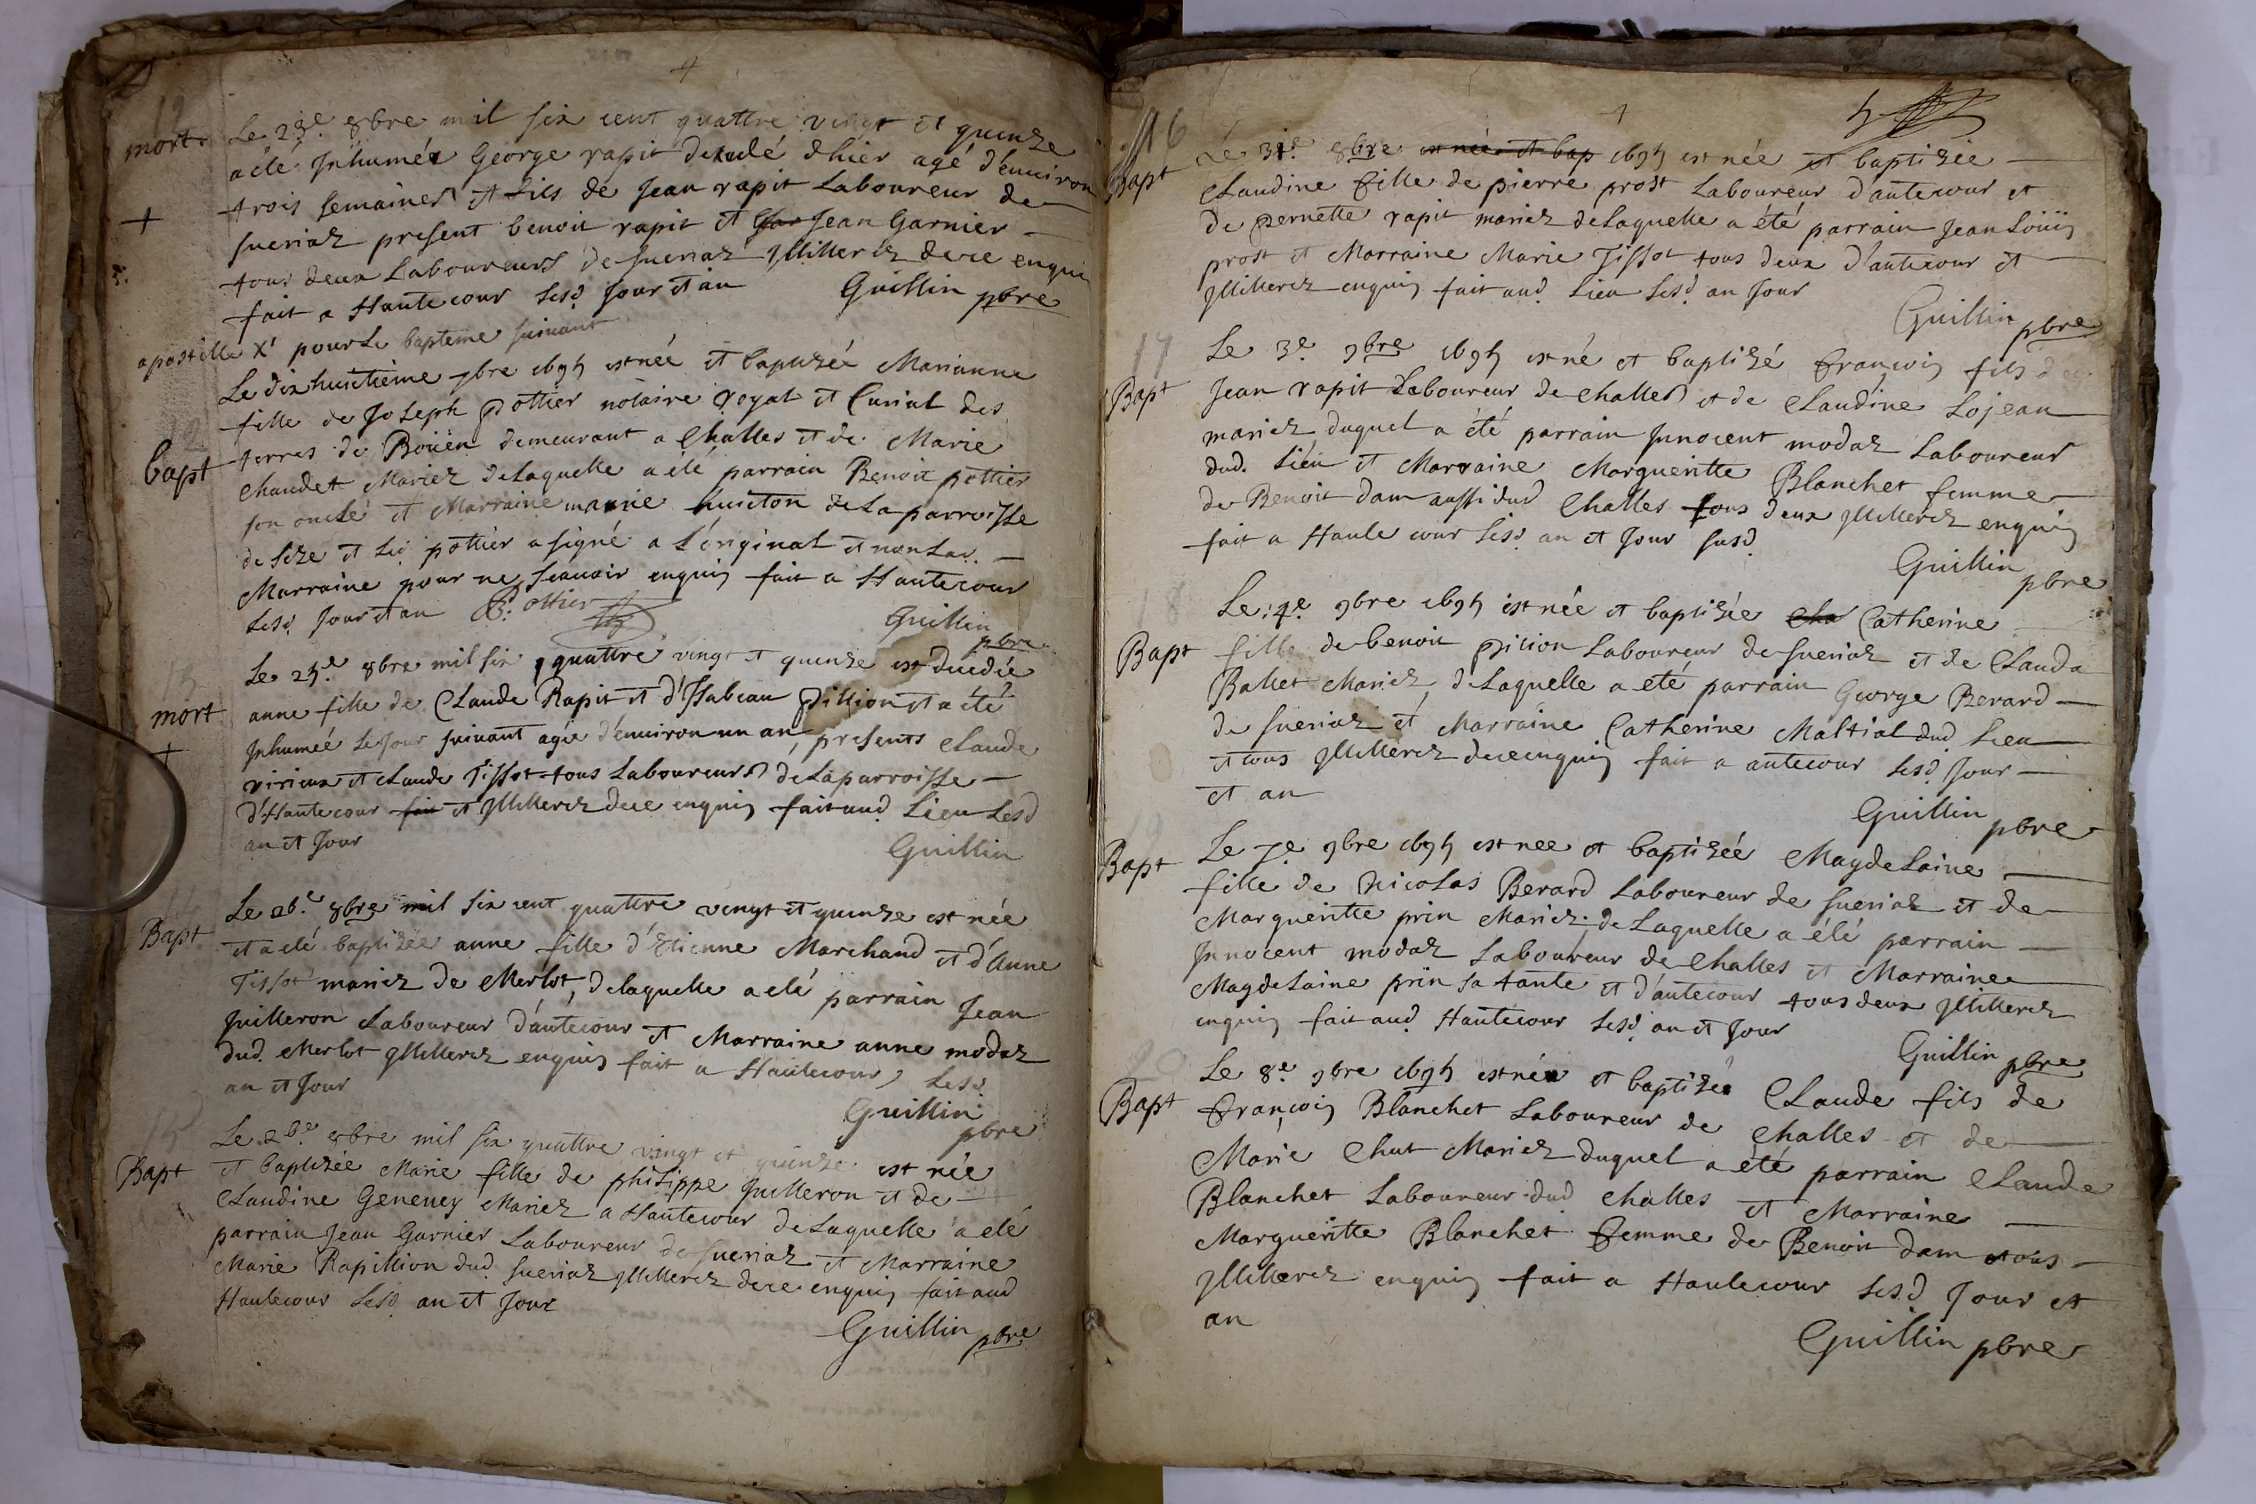 4
11
mort
Le 23e 8bre mil six cent quattre vingt et quinze
a été Inhumée George rapit decedé dhier agé d'environ
trois semaines et fils de Jean rapit Laboureur de
sueriaz present benoit rapit et Jean Garnier
tous deux Laboureurs de sueriaz Illiterez de ce enquis
fait a Hautecour lesd Jour et an Guillin pbre
apostille X pour le bapteme suivant
12
bapt
Le dix huictieme 7bre 1695 est née et baptizée Marianne
fille de Joseph Pottier notaire royal et Curial des
terres de Boüen demeurant a Challes et de Marie
Chaudet Mariez de Laquelle a été parrain Benoit pottier
son oncle et Marraine marie huicton de La parroisse
de et led pottier a signé a L'original et non La
Marraine pour ne scauoir enquis fait a Hautecour
lesd Jour et an B. Pottier
Guillin
pbre
13
mort
Le 25e 8bre mil six quattre vingt et quinze est decedée
anne fille de Claude Rapit et d'Isabeau pillion et a été
Inhumeé le Jour suivant agée d'environ un an, presents Claude
virieux et Claude Tissot tous Laboureurs de La parroisse
d'Hautecour fait et Illiterez de ce enquis fait aud Lieu Lesd
an et Jour
Guillin
14
Bapt
Le 26e 8bre mil six cent quattre vingt et quinze est née
et a elé baptizée anne fille d'Etienne Marchand et d'Anne
Tissot mariez de Merlot, delaquelle a elé parrain Jean
Juilleron Laboureur d'autecour et Marraine anne modaz
dud Merlot Illiterez enquis fait a Hautecour Lesd
an et Jour
Guillin
pbre
15
Bapt
Le 26e 8bre mil six quattre vingt et quinze est née
et baptizée Marie fille de philippe Juilleron et de
Claudine Geneuey Mariez a Hautecour de Laquelle a elé
parrain Jean Garnier Laboureur de sueriaz et Marraine
Marie Rapillion dud sueriaz Illiterez de ce enquis fait aud
Hautecour Lesd an et Jour
Guillin pbre
5
16
Bapt
Le 31e 8bre est née et bap 1695 est née et baptizée
Claudine fille de pierre prost Laboureur d'autecour et
de pernette rapit mariez de Laquelle a été parrain Jean Loüis
prost et Marraine Marie Tissot tous deux d'autecour et
Illiterez enquis fait aud Lieu Lesd an Jour
Guillin pbre
17
Bapt
Le 3e 9bre 1695 est né et baptizé françois fils de
Jean rapit Laboureur de Challes et de Claudine Lojean
mariez duquel a été parrain Innocent modaz Laboureur
dud Liéu et Marraine Margueritte Blanchet femme
de Benoit dam aussi dud Challes tous deux Illiterez enquis
fait a Haute cour Lesd an et Jour susd
Guillin
pbre
18
Bapt
Le 4e 9bre 1695 est née et baptizée Cha Catherine
fille de benoit pition Laboureur de sueriaz et de Clauda
Ballet Mariez de Laquelle a eté parrain George Berard
de sueriaz et Marraine Catherine Maltial dud Lieu
et tous Illiterez de ce enquis fait a autecour Lesd Jour
et an
Guillin pbre
19
Bapt
Le 7e 9bre 1695 est nee et baptizée Magdelaine
fille de Nicolas Berard Laboureur de sueriaz et de
Margueritte prin Mariez de Laquelle a élé parrain
Innocent modaz Laboureur de Challes et Marraine
Magdelaine prin sa tante et d'autecour tous deux Illiterez
enquis fait aud Hautecour Lesd an et Jour
Guillin pbre
20
Bapt
Le 8e 9bre 1695 est né et baptizé Claude fils de
françois Blanchet Laboureur de Challes et de
Marie Chut Mariez duquel a été parrain Claude
Blanchet Laboureur dud Challes et Marraine
Margueritte Blanchet femme de Benoit dam tous
Illiterez enquis fait a Hautecour Lesd Jour et
an
Guillin pbre